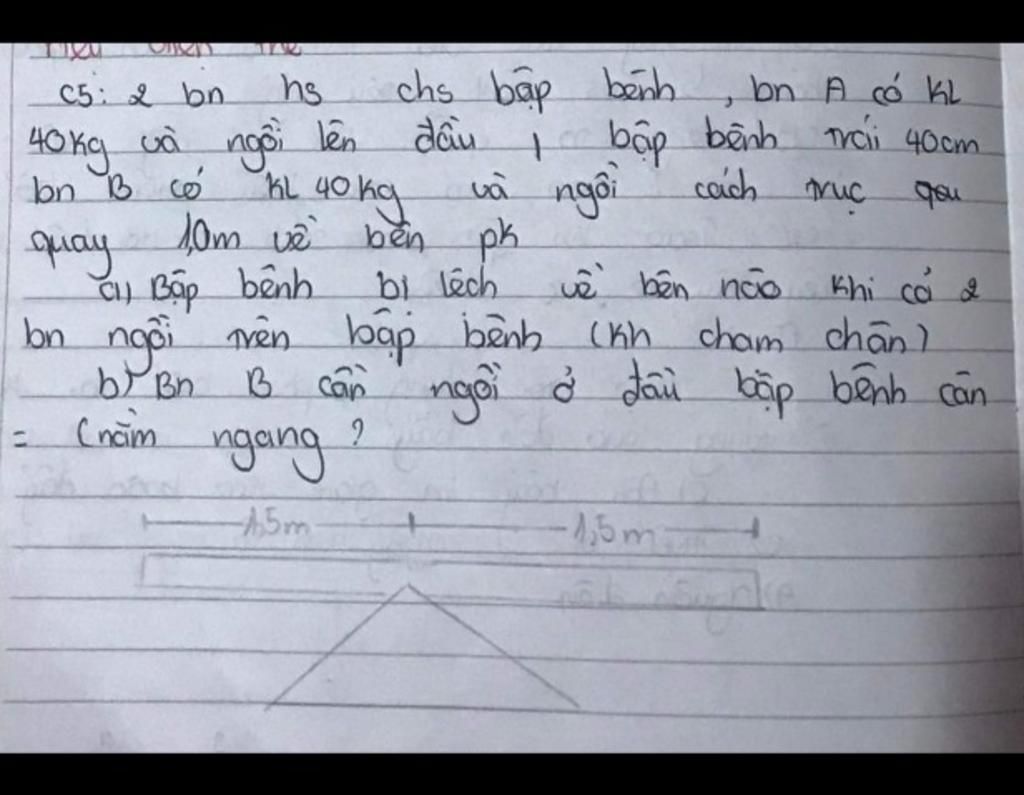 C5: 2 bn hs chs bập bênh, bn A có KL
40Kg và ngồi lên đầu 1 bập bênh trái 40cm
bn B có KL 40Kg và ngồi cách trục qeu
quay 1,0m về bên pk
a) Bập bênh bị lệch về bên nào khi cả 2
bn ngồi trên bập bênh (kh chạm chân)
b) Bn B cần ngồi ở đâu bập bênh cân
= (nằm ngang ?
1,5m 1,5m